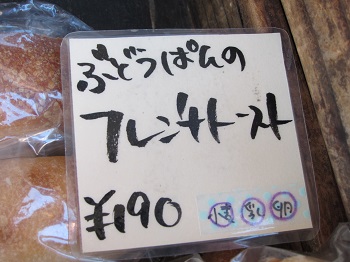 ぶどうぱんの
フレンチトースト
¥190 小麦 乳 卵